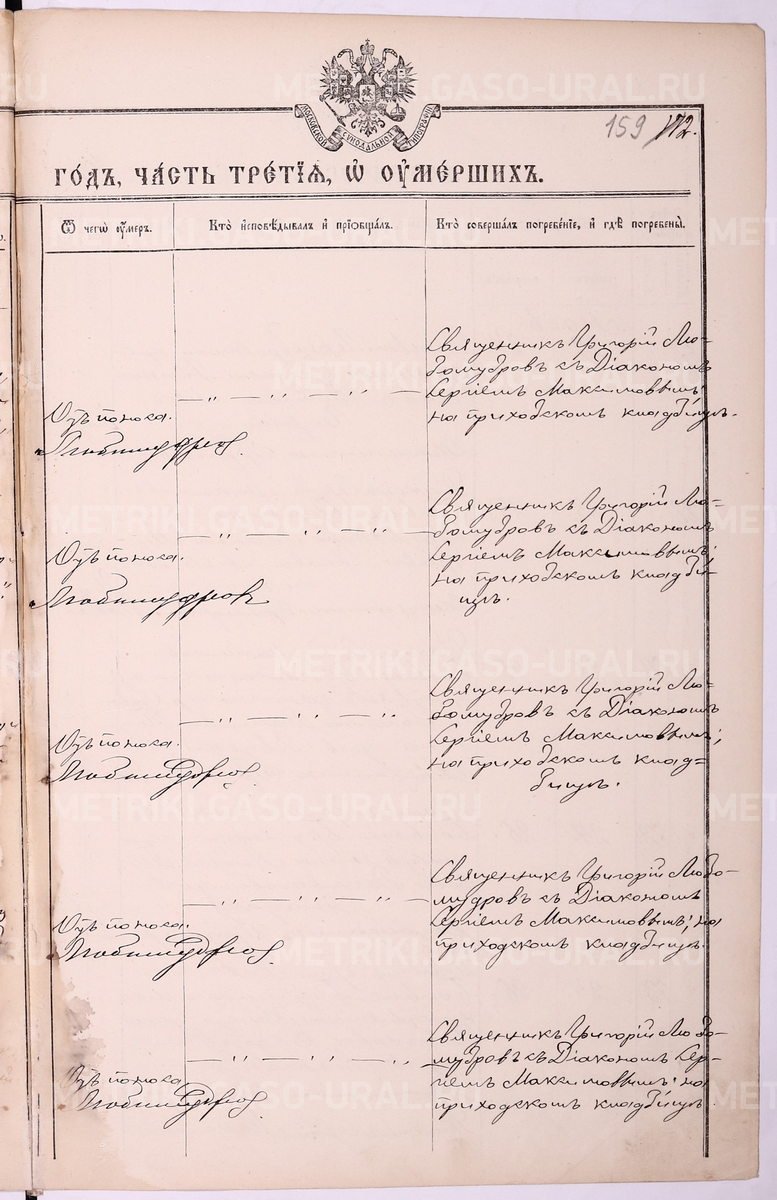 МОСКОВСКОЙ СѴНОДАЛЬНОЙ ТИПОГРАФІИ
159 172.
ГО́ДЪ, ЧА́СТЬ ТРЕ́ТІѦ, Ѡ҆ ОУ҆МЕ́РШИХЪ.
Ѿ чегѡ̀ оу҆́меръ.
Кто̀ и҆сповѣ́дывалъ и҆ прїѡбща́лъ.
Кто̀ соверша́лъ погребе́нїе, и҆ гдѣ̀ погребены̀.
Священникъ Григорій Лю-
бомудровъ съ Діакономъ
Сергіемъ Максимовымъ;
на приходскомъ кладбищѣ.
— „ — „ — „ —
Отъ поноса.
Любомудровъ
Священникъ Григорій Лю-
бомудровъ съ Діакономъ
Сергіемъ Максимовымъ;
на приходскомъ кладби-
щѣ.
— „ — „ — „ —
Отъ поноса.
Любомудровъ
Священникъ Григорій Лю-
бомудровъ съ Діакономъ
Сергіемъ Максимовымъ;
на приходскомъ клад-
бищѣ.
— „ — „ — „
Отъ поноса.
Любомудровъ
Священникъ Григорій Любо-
мудровъ съ Діакономъ
Сергіемъ Максимовымъ; на
приходскомъ кладбищѣ.
— „ — „ — „ —
Отъ поноса.
Любомудровъ
Священникъ Григорій Любо-
мудровъ съ Діакономъ Сер-
гіемъ Максимовымъ; на
приходскомъ кладбищѣ
— „ — „ — „ —
Отъ поноса
Любомудровъ
METRIKI.GASO-URAL.RU